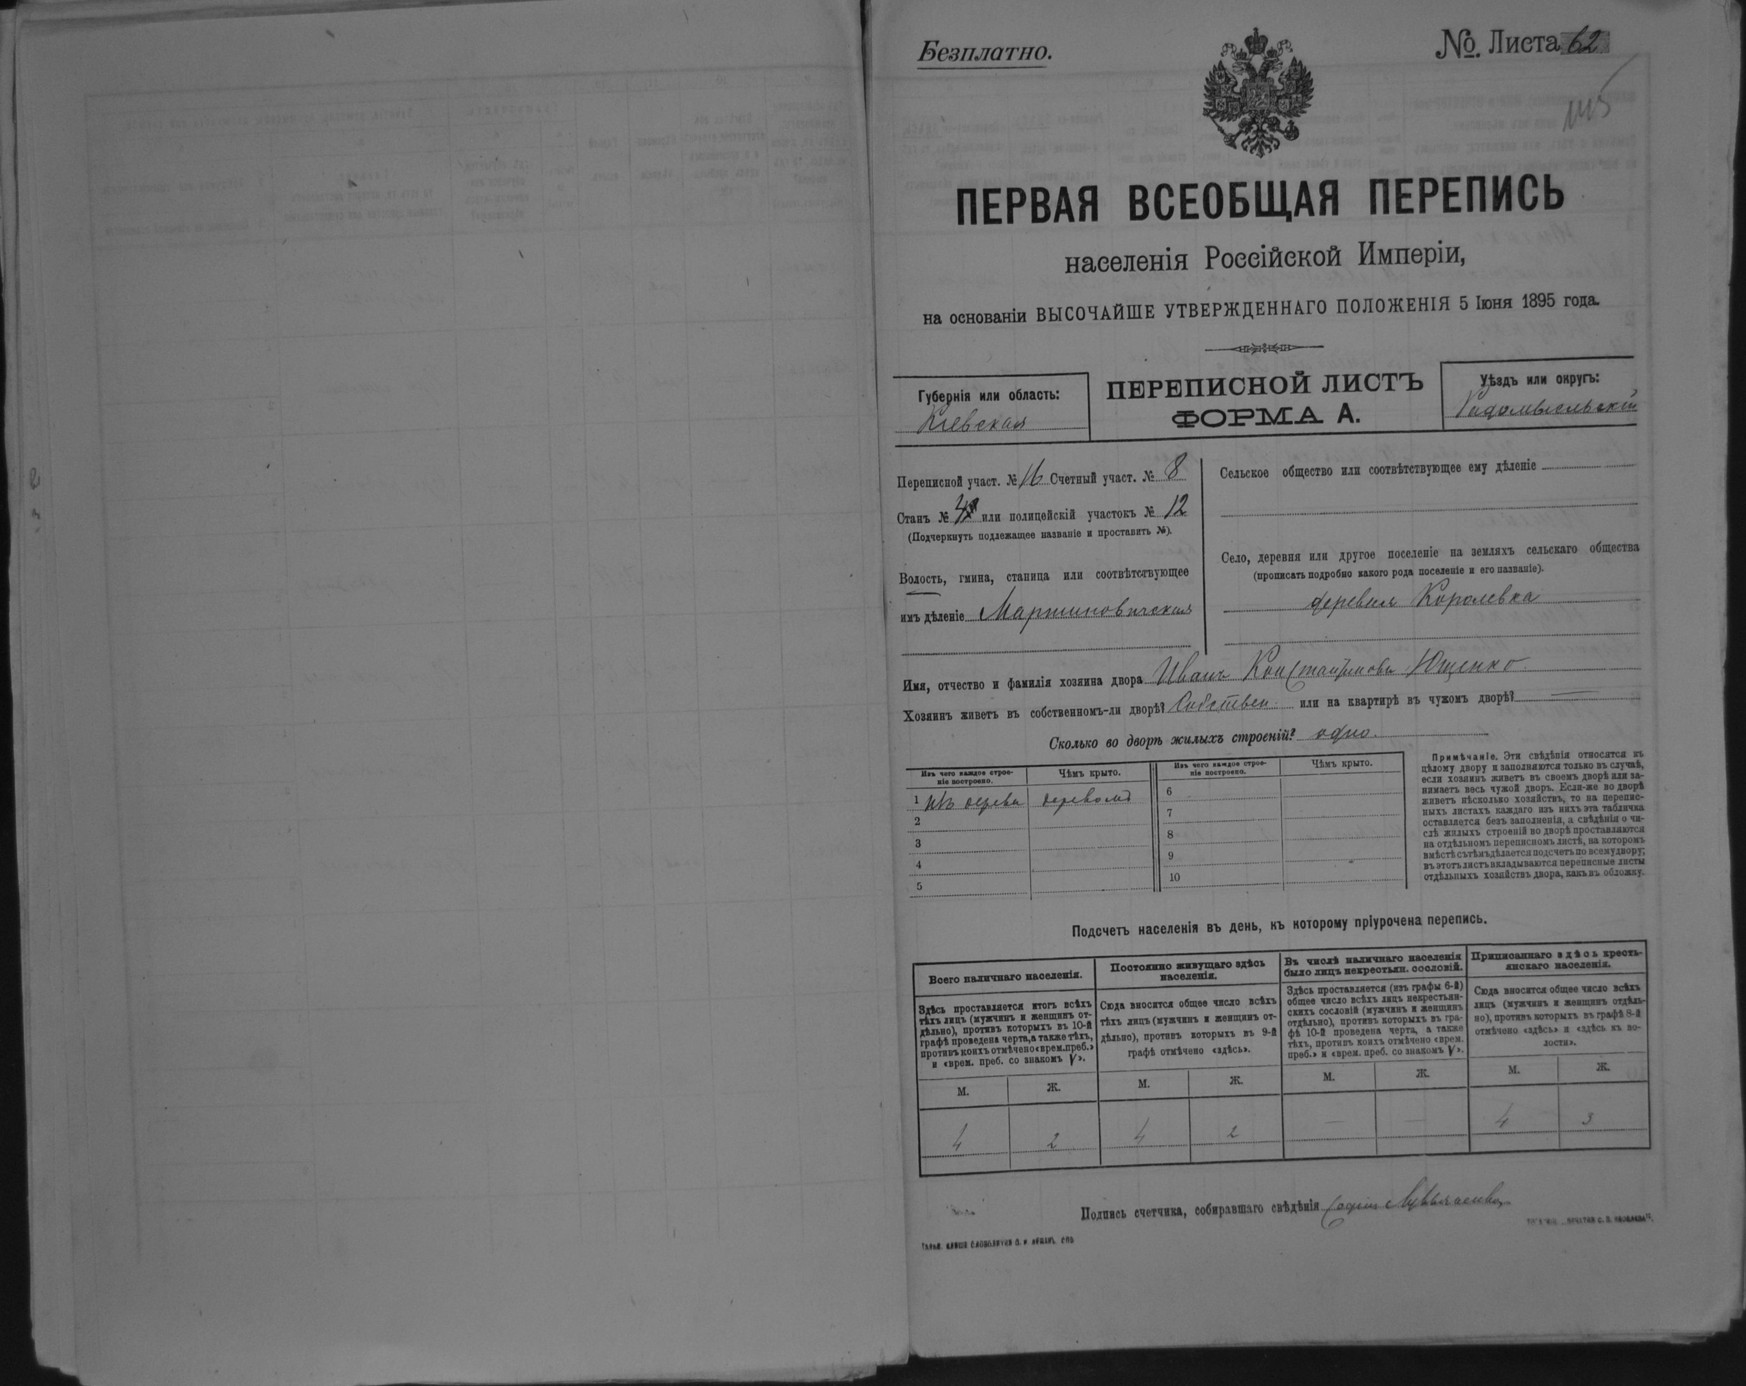 Безплатно.
№ Листа 62
ПЕРВАЯ ВСЕОБЩАЯ ПЕРЕПИСЬ
населенія Россійской Имперіи,
на основаніи ВЫСОЧАЙШЕ УТВЕРЖДЕННАГО ПОЛОЖЕНІЯ 5 Іюня 1895 года.
Губернія или область:
Кіевская
ПЕРЕПИСНОЙ ЛИСТЪ
ФОРМА А.
Уѣздъ или округъ:
Радомысльскій
Переписной участ. № 16 Счетный участ. № 8
Станъ № или полицейскій участокъ № 12
(Подчеркнуть подлежащее названіе и проставить №).
Волость, гмина, станица или соотвѣтствующее
имъ дѣленіе Мартиновичская
Сельское общество или соотвѣтствующее ему дѣленіе
Село, деревня или другое поселеніе на земляхъ сельскаго общества
(прописать подробно какого рода поселеніе и его названіе).
деревня Королевка
Имя, отчество и фамилія хозяина двора Иванъ Константиновъ Ющенко
Хозяинъ живетъ въ собственномъ-ли дворѣ? Собствен. или на квартирѣ въ чужомъ дворѣ? —
Сколько во дворѣ жилыхъ строеній? одно.
Изъ чего каждое строе-
ніе построено.
Чѣмъ крыто.
Изъ чего каждое строе-
ніе построено.
Чѣмъ крыто.
1 изъ дерева деревомъ
2
3
4
5
6
7
8
9
10
Примѣчаніе. Эти свѣдѣнія относятся къ
цѣлому двору и заполняются только въ случаѣ,
если хозяинъ живетъ въ своемъ дворѣ или за-
нимаетъ весь чужой дворъ. Если-же во дворѣ
живетъ нѣсколько хозяйствъ, то на перепис-
ныхъ листахъ каждаго изъ нихъ эта табличка
оставляется безъ заполненія, а свѣдѣнія о чи-
слѣ жилыхъ строеній во дворѣ проставляются
на отдѣльномъ переписномъ листѣ, на которомъ
вмѣстѣ съ тѣмъ дѣлается подсчетъ по всему двору;
въ этотъ листъ вкладываются переписные листы
отдѣльныхъ хозяйствъ двора, какъ въ обложку.
Подсчетъ населенія въ день, къ которому пріурочена перепись.
Всего наличнаго населенія.
Здѣсь проставляется итогъ всѣхъ
тѣхъ лицъ (мужчинъ и женщинъ от-
дѣльно), противъ которыхъ въ 10-й
графѣ проведена черта, а также тѣхъ,
противъ коихъ отмѣчено «врем. преб.»
и «врем. преб. со знакомъ V».
Постоянно живущаго здѣсь
населенія.
Сюда вносится общее число всѣхъ
тѣхъ лицъ (мужчинъ и женщинъ от-
дѣльно), противъ которыхъ въ 9-й
графѣ отмѣчено «здѣсь».
Въ числѣ наличнаго населенія
было лицъ некрестьян. сословій.
Здѣсь проставляется (изъ графы 6-й)
общее число всѣхъ лицъ некрестьян-
скихъ сословій (мужчинъ и женщинъ
отдѣльно), противъ которыхъ въ гра-
фѣ 10-й проведена черта, а также
тѣхъ, противъ коихъ отмѣчено «врем.
преб.» и «врем. преб. со знакомъ V».
Приписаннаго здѣсь кресть-
янскаго населенія.
Сюда вносится общее число всѣхъ
лицъ (мужчинъ и женщинъ отдѣль-
но), противъ которыхъ въ графѣ 8-й
отмѣчено «здѣсь» и «здѣсь въ во-
лости».
М. Ж. М. Ж. М. Ж. М. Ж.
4 2 4 2 — — 4 3
Подпись счетчика, собиравшаго свѣдѣнія